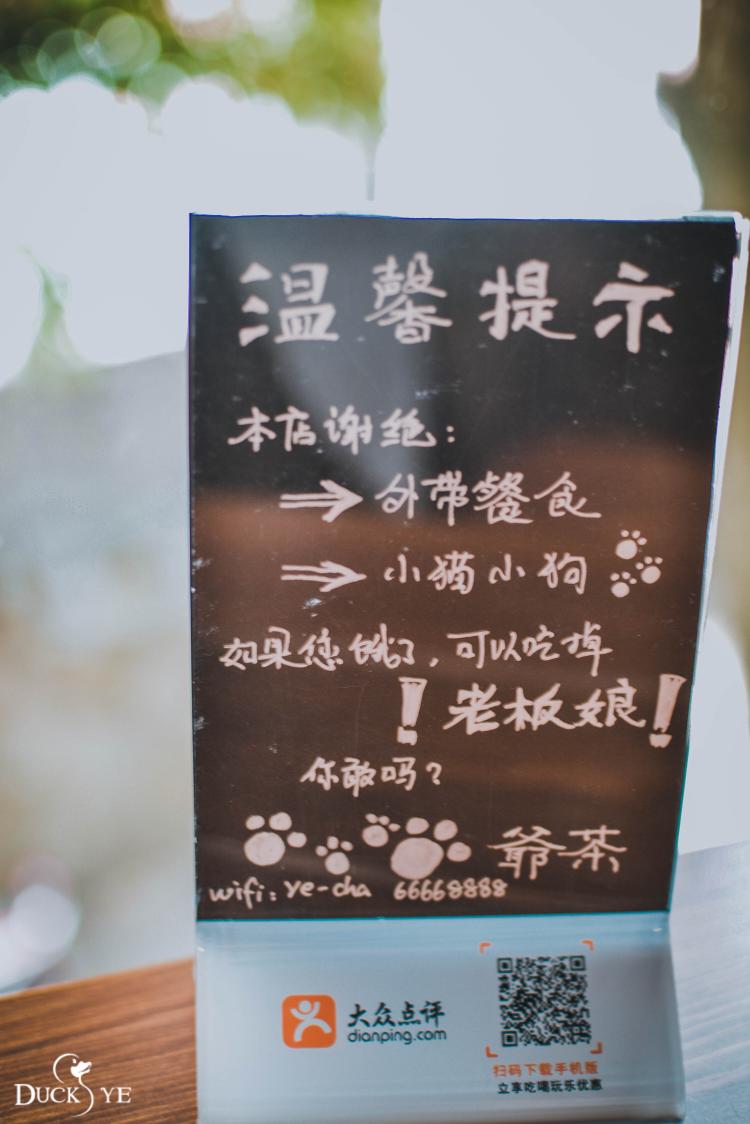 温馨提示
本店谢绝:
⇒外带餐食
⇒小猫小狗
如果您饿了,可以吃掉
!老板娘!
你敢吗?
爷茶
wifi: ye-cha 66668888
大众点评
dianping.com
扫码下载手机版
立享吃喝玩乐优惠
DUCKS YE